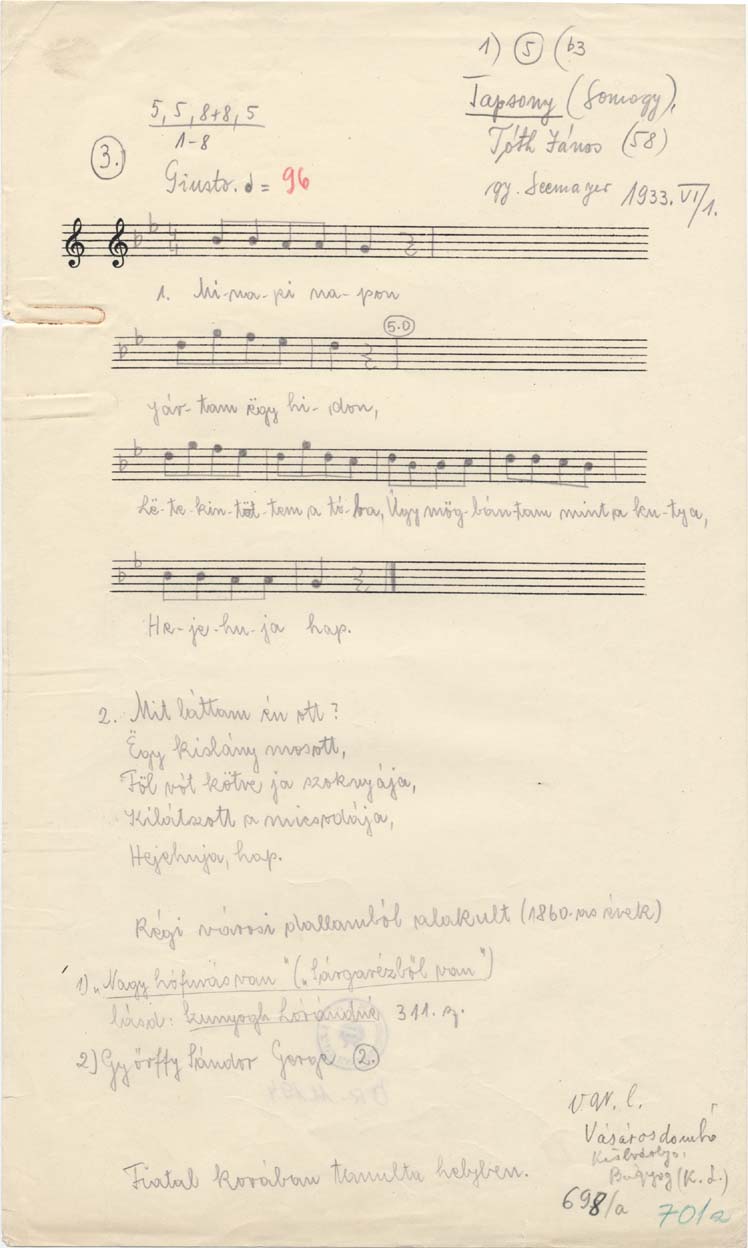 1) 5 (b3
5, 5, 8+8, 5
1-8
Tapsony (Somogy),
Tóth János (58)
3.
Giusto. = 96
gy. Seemayer 1933. VI/1.
4
4
1. Mi-na-pi na-pon
5.0
jár-tam ëgy hi-don,
Lë-te-kin-töt-tem a tó-ba, Úgy mög-bán-tam mint a ku-tya,
He-je-hu-ja hap.
2. Mit láttam én ott?
Ëgy kislány mosott,
Föl vót kötve ja szoknyája,
Kilátszott a micsodája,
Hejehuja, hap.
Régi városi dallamból alakult (1860-as évek)
1) „Nagy hófúvás van" („Sárgarézből van")
lásd: Szunyogh Lórándné 311. sz.
2) Győrffy Sándor Gorge 2.
V.
Vásárosdombó
Bogyog (K. J.)
Fiatal korában tanulta helyben.
698/a 701a